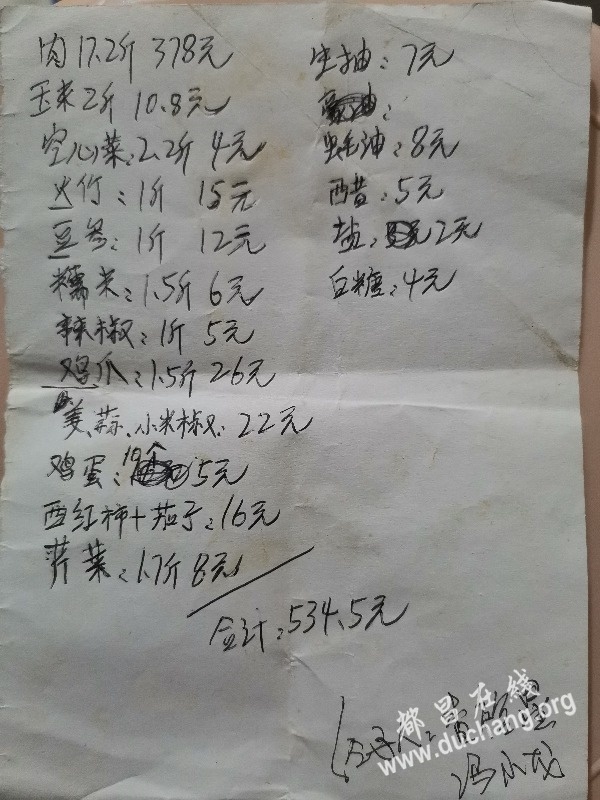 肉17.2斤 378元
玉米2斤 10.8元
空心菜:2.2斤 4元
火竹:1斤 15元
豆参:1斤 12元
糯米:1.5斤 6元
辣椒:1斤 5元
鸡爪:1.5斤 26元
姜、蒜、小米椒: 22元
鸡蛋:10个 5元
西红柿+茄子:16元
芹菜:1.7斤 8元
生抽:7元
蚝油:8元
醋:5元
盐:2元
白糖:4元
合计:534.5元
都昌在线
www.duchang.org
冯小龙